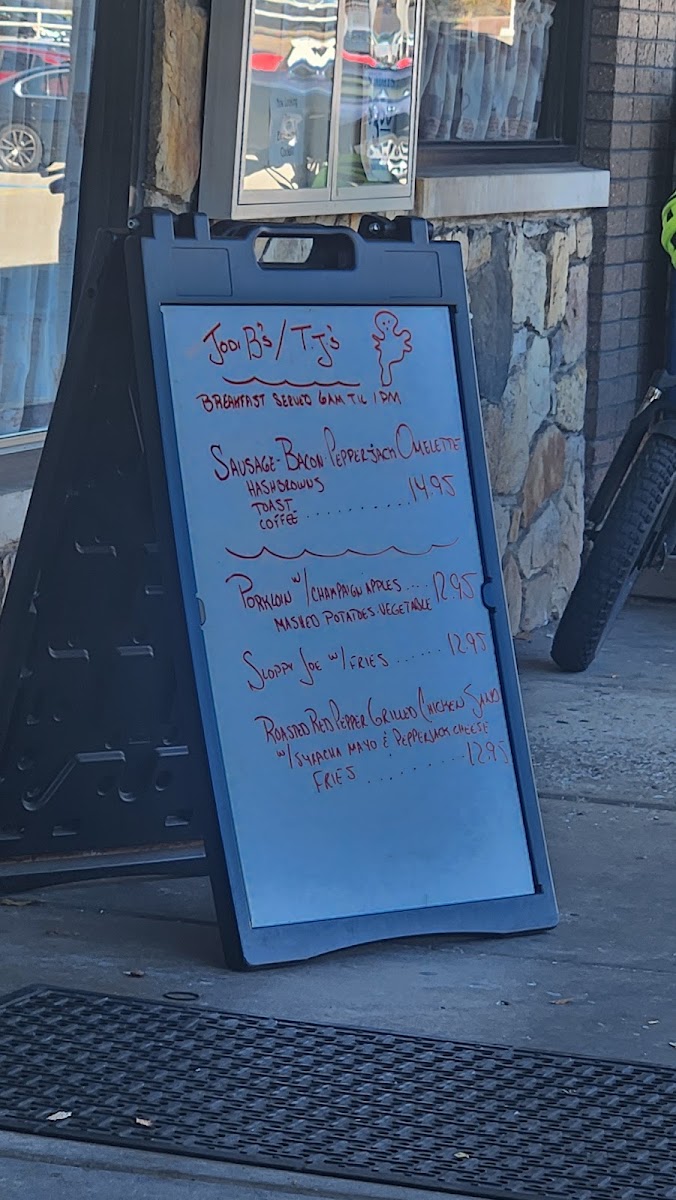 Jodi B's / T.J's
BREAKFAST SERVED 6AM TIL 1PM
SAUSAGE-BACON PEPPERJACK OMELETTE
HASHBROWNS
TOAST
COFFEE .......... 14.95
PORKLOIN w/ CHAMPAIGN APPLES .... 12.95
MASHED POTATOES-VEGETABLE
SLOPPY JOE w/ FRIES ...... 12.95
ROASTED RED PEPPER GRILLED CHICKEN SAND
w/ SYRACHA MAYO & PEPPERJACK CHEESE
FRIES .......... 12.95